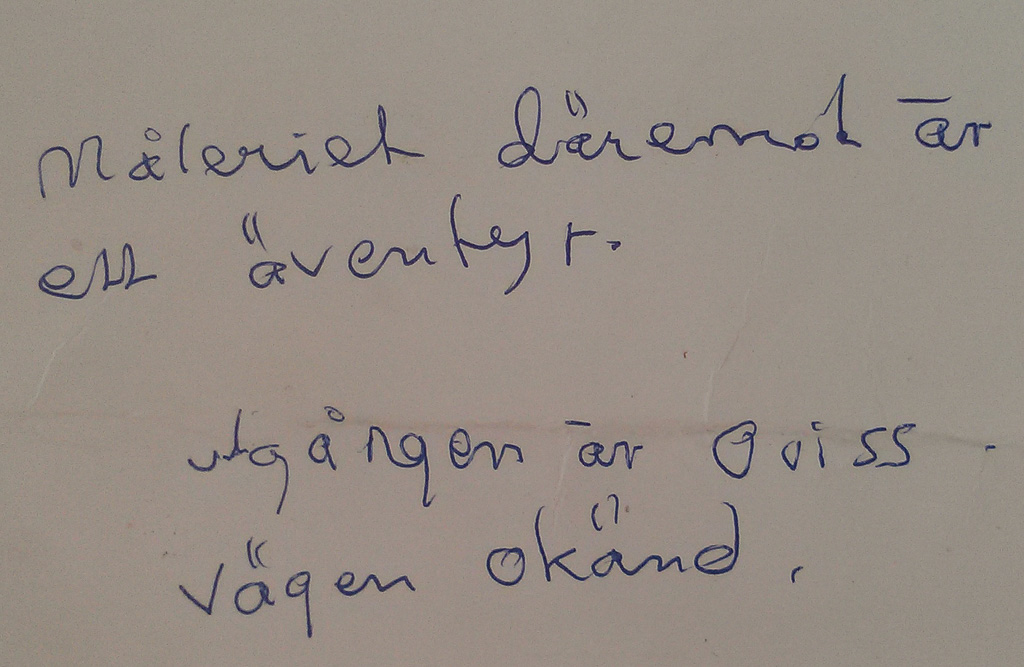 Måleriet däremot är
ett äventyr.
utgången är oviss.
vägen okänd.